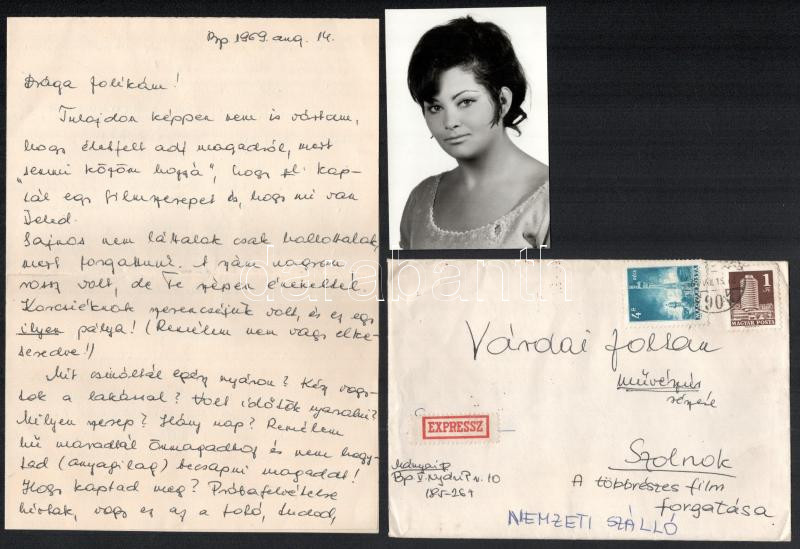 Bp 1969. aug. 14.
Drága Zolikám!
Tulajdon képpen nem is vártam,
hogy életjelt adj magadról, mert
„semmi közöm hozzá", hogy kap-
tál egy filmszerepet és, hogy mi van
Veled.
Sajnos nem láttalak csak hallottalak,
mert forgattunk. A szám nagyon
rossz volt, de Te szépen énekeltél.
Korcsiéknak szerencséjük volt, és ez egy
ilyen pálya! (Remélem nem vagy elke-
seredve!)
Mit csináltál egész nyáron? Kész vagy-
tok a lakással? Volt időtök nyaralni?
Milyen szerep? Hány nap? Remélem
hű maradtál Önmagadhoz és nem hagy-
tad (anyagilag) becsapni magadat!
Hogy kaptad meg? Próbafelvételre
hívtak, vagy ez az a való, tudod,
4 Ft
MAGYAR POSTA
1 Ft
MAGYAR POSTA
Várdai Zoltan
művész
részére
EXPRESSZ
Bp V. Nyári n. 10
185-264
Szolnok
A többrészes film
forgatása
NEMZETI SZÁLLÓ
darabanth